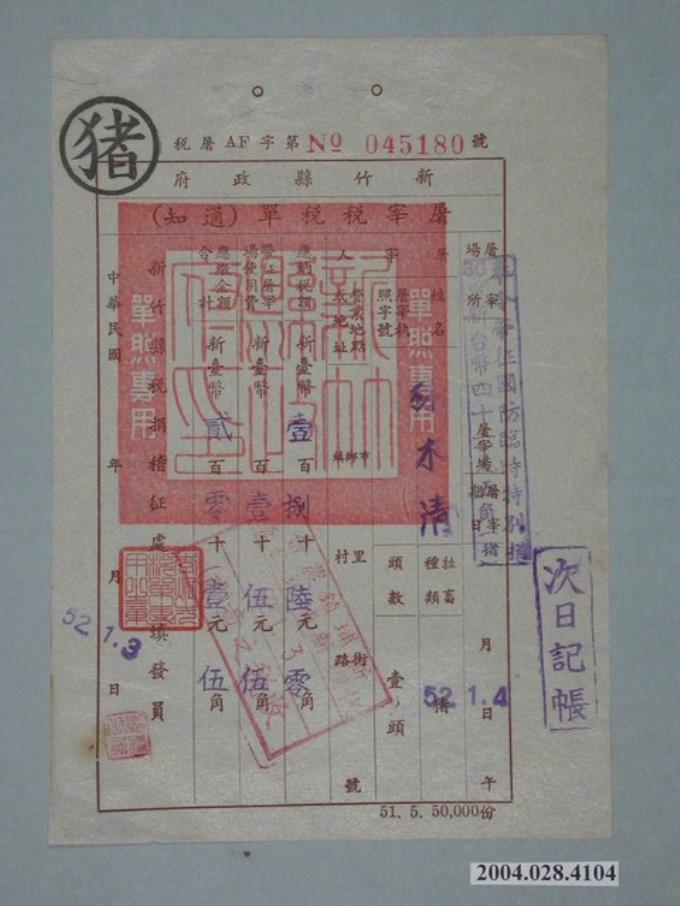 猪
稅屠AF字第 No 045180 號
新竹縣政府
屠宰稅稅單(通知)
單照專用
單照專用
屠宰場所
屠宰人
姓名
木清
屠宰執照字號
營業地點或地址
市鄉鎮
里村
街路
號
牲畜種類
猪
頭數
壹頭
屠宰日期
月
日
午
52 1.4
應納稅額
新臺幣壹百捌十陸元零角
新臺幣百壹十伍元伍角
應繳金額合計
新臺幣貳百零十壹元伍角
新竹縣稅捐稽征處填發員
中華民國 年 月 日
52 1.3
次日記帳
51. 5. 50,000份
2004.028.4104